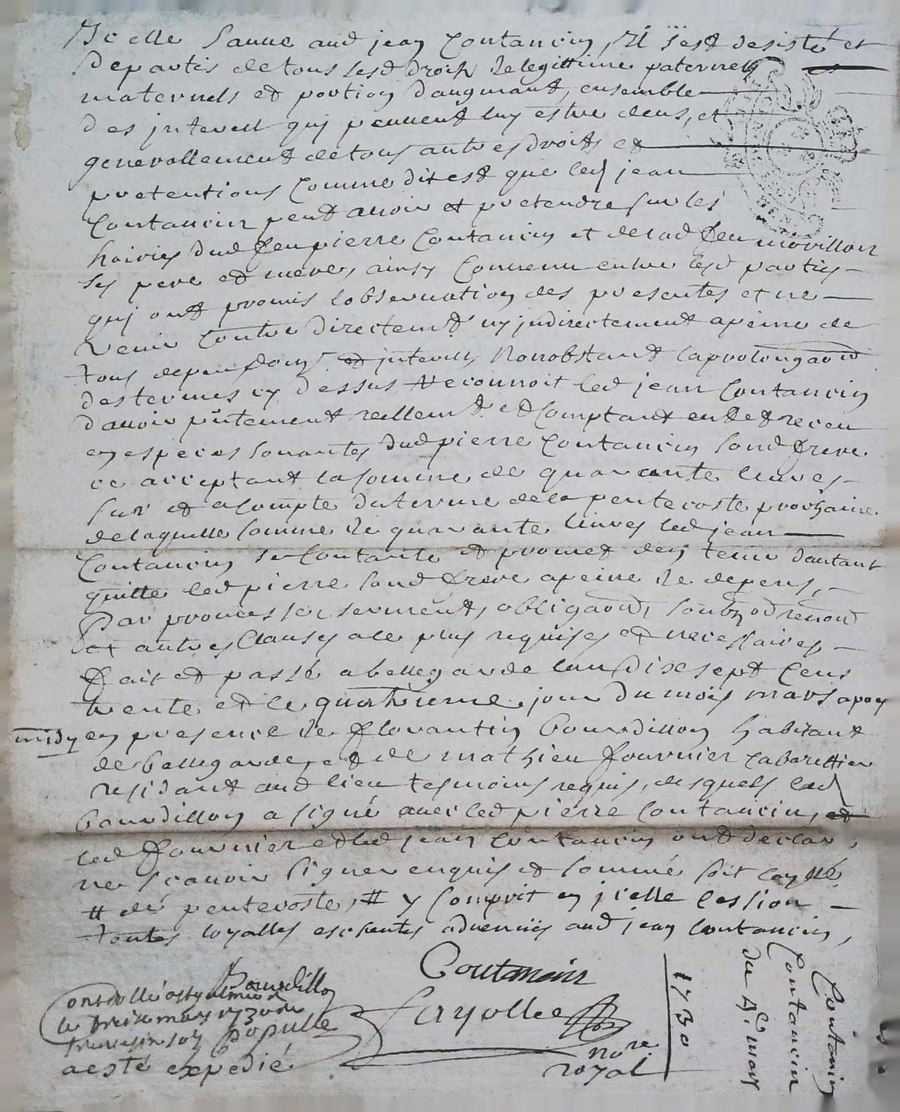 Jcelle sauue aud jean Contancin, Et s'est desisté et
departis de tous sesd droits de legittime paternels
maternels et portion daugmant, ensemble
des jnterest quj peuuent luy estre deus, et
generallement de tous autres droits et
pretentions comme dit est que led jean
Contancin peut auoir et pretendre sur les
hoiries dud feu pierre Contancin et de lad feu
ses pere et mere, ainsy conuenu entre lesd parties
quj ont promis lobseruation des presentes et ne
venir contre directemt ny jndirectement apeine de
tous depens et jnterests, Nonobstant
des termes cy dessus Reconnoit led jean Contancin
dauoir reellemt et comptant eu et receu
en especes sonantes dud pierre Contancin sond frere
ce acceptant la somme de quarante liures
sur et a compte du terme de la pentecoste prochaine
de laquelle somme de quarante liures led jean
Contancin se contante et promet den tenir dautant
quitte led pierre sond frere apeine de depens,
Par promesses, serments,
et autres clauses a ce plus requises et necessaires
fait et passé a bellegarde lan dix sept cens
trente et le quatrieme jour du mois mars apres
midy en presence de florantin Bourdillon habitant
de bellegarde, et de mathieu fournier cabarettier
residant aud lieu tesmoins requis, desquels led
Bourdillon a signé auec led pierre Contancin, et
led fournier et led jean Contancin ont declaré
ne scauoir signer enquis et sommé soit
# de pentecoste, # y comprit en jcelle cession
toutes loyalles escheutes aduenües aud jean Contancin,
Bourdillon
Contancin
Fayolle
nore
royal
le treize mars 1730
a esté expedié
1730
du 4e mars
Contancin
Contancin